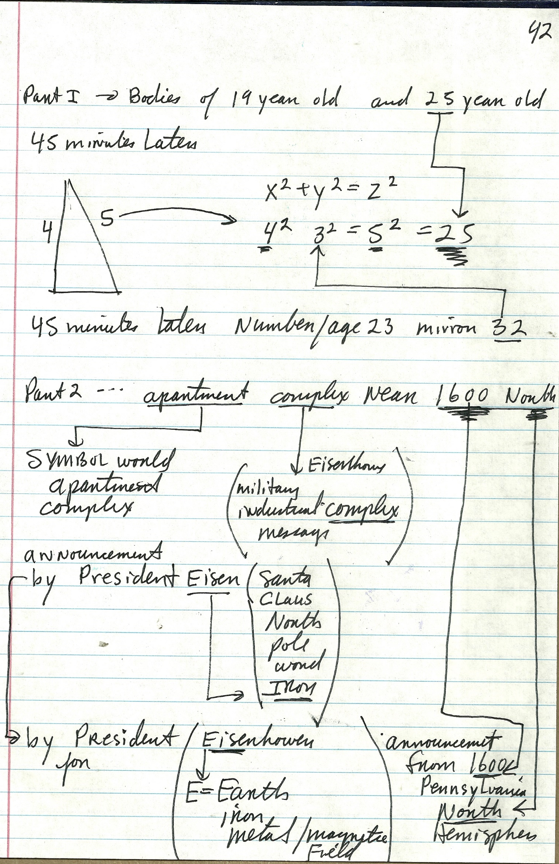 42
Part I → Bodies of 19 year old and 25 year old
45 minutes Later
x² + y² = z²
4 5 4² 3² = 5² = 25
45 minutes Later Number/age 23 mirror 32
Part 2 --- apartment complex Near 1600 North
SYMBOL world
apartment
complex
Eisenhower
military
industrial complex
message
announcement
by President Eisen (Santa
Claus
North
pole
word
Iron
by President (Eisenhower
for
E = Earth
iron
metal/magnetic
Field
announcement
from 1600
Pennsylvania
North
Hemisphere